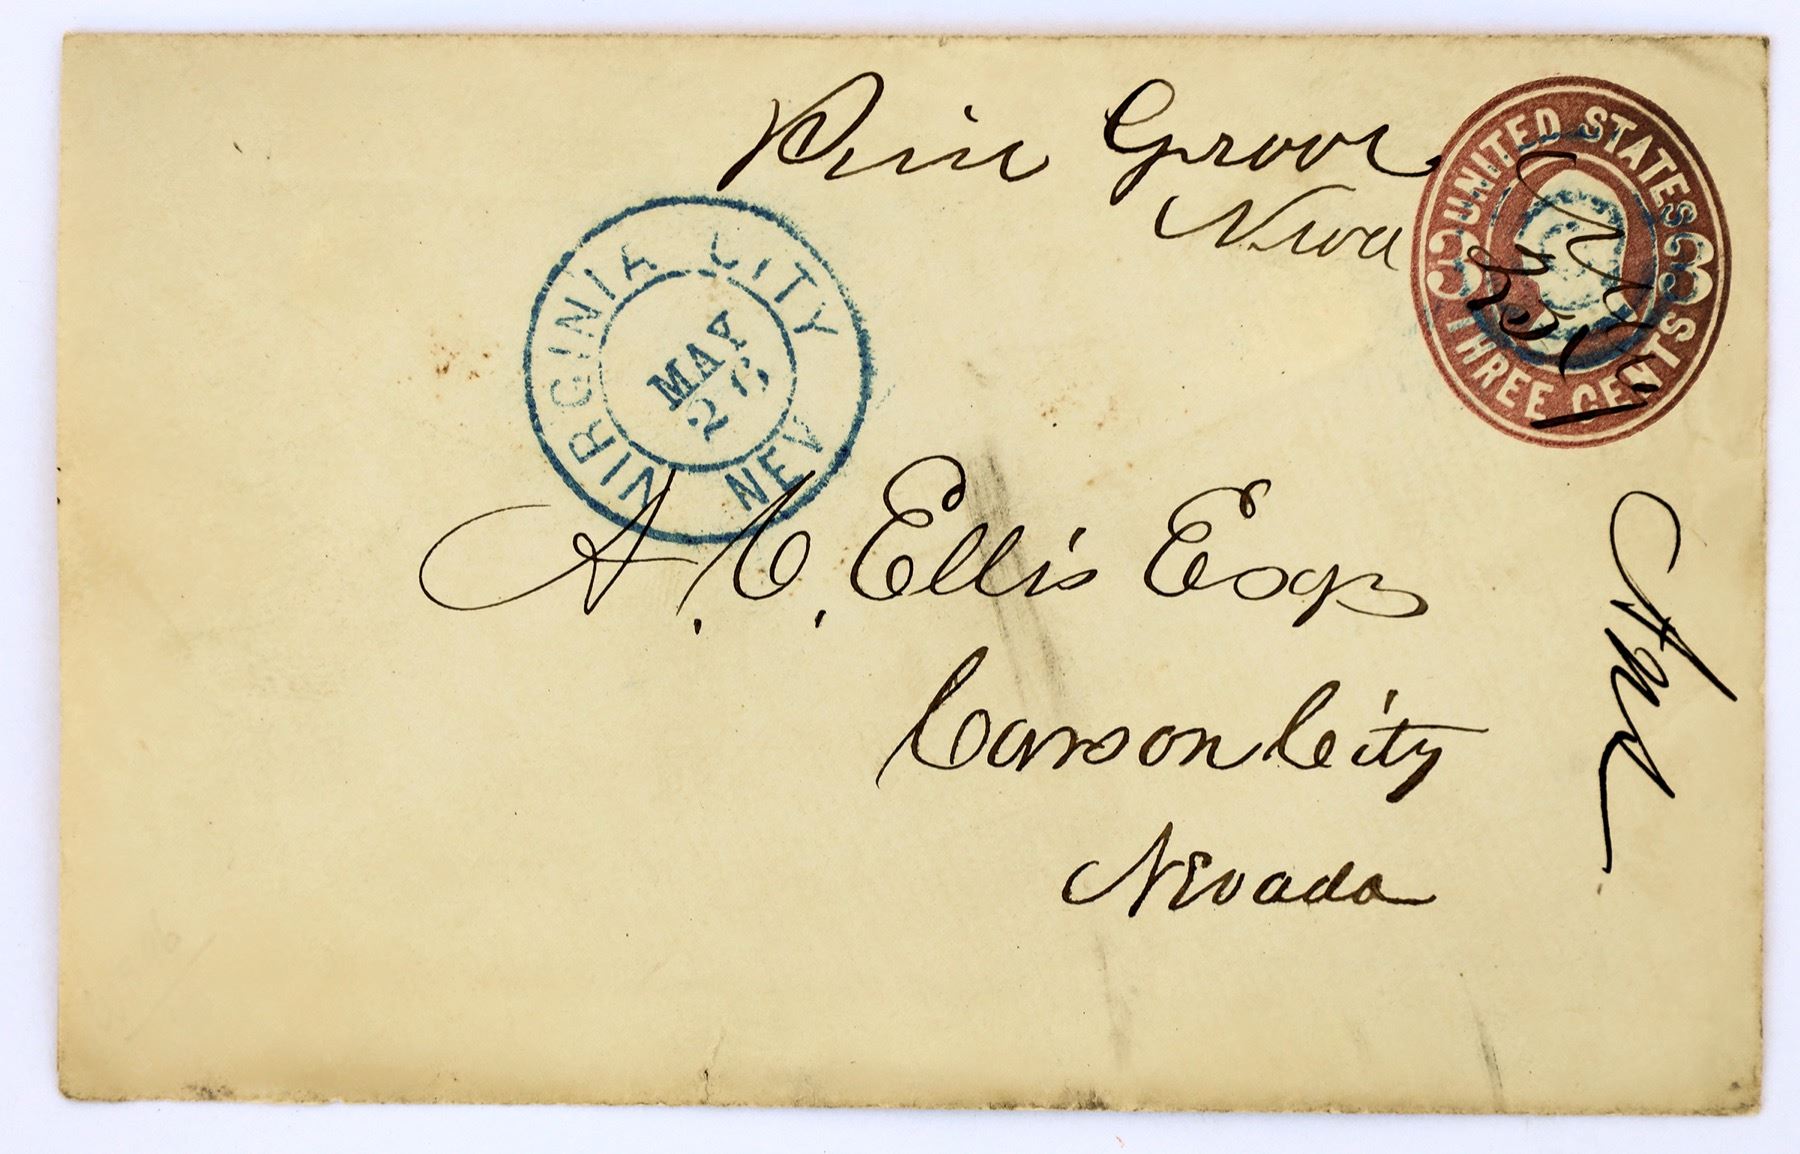 Pine Grove
Neva
UNITED STATES
3 3
THREE CENTS
VIRGINIA CITY
MAY
26
NEV
A. C. Ellis Esqr
Carson City
Nevada